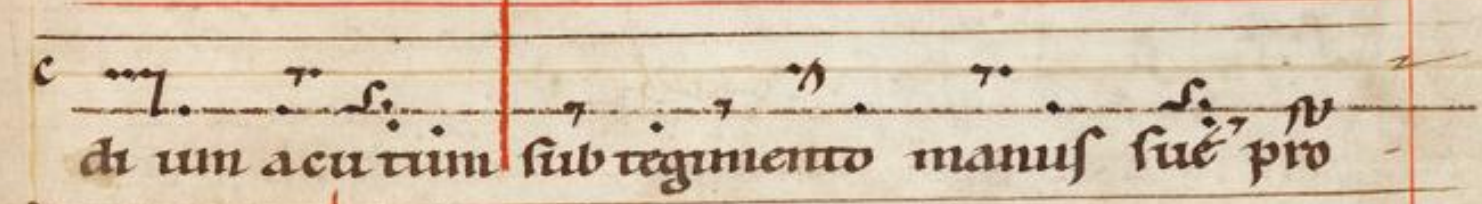 di um acu tum sub tegimento manus sue pro